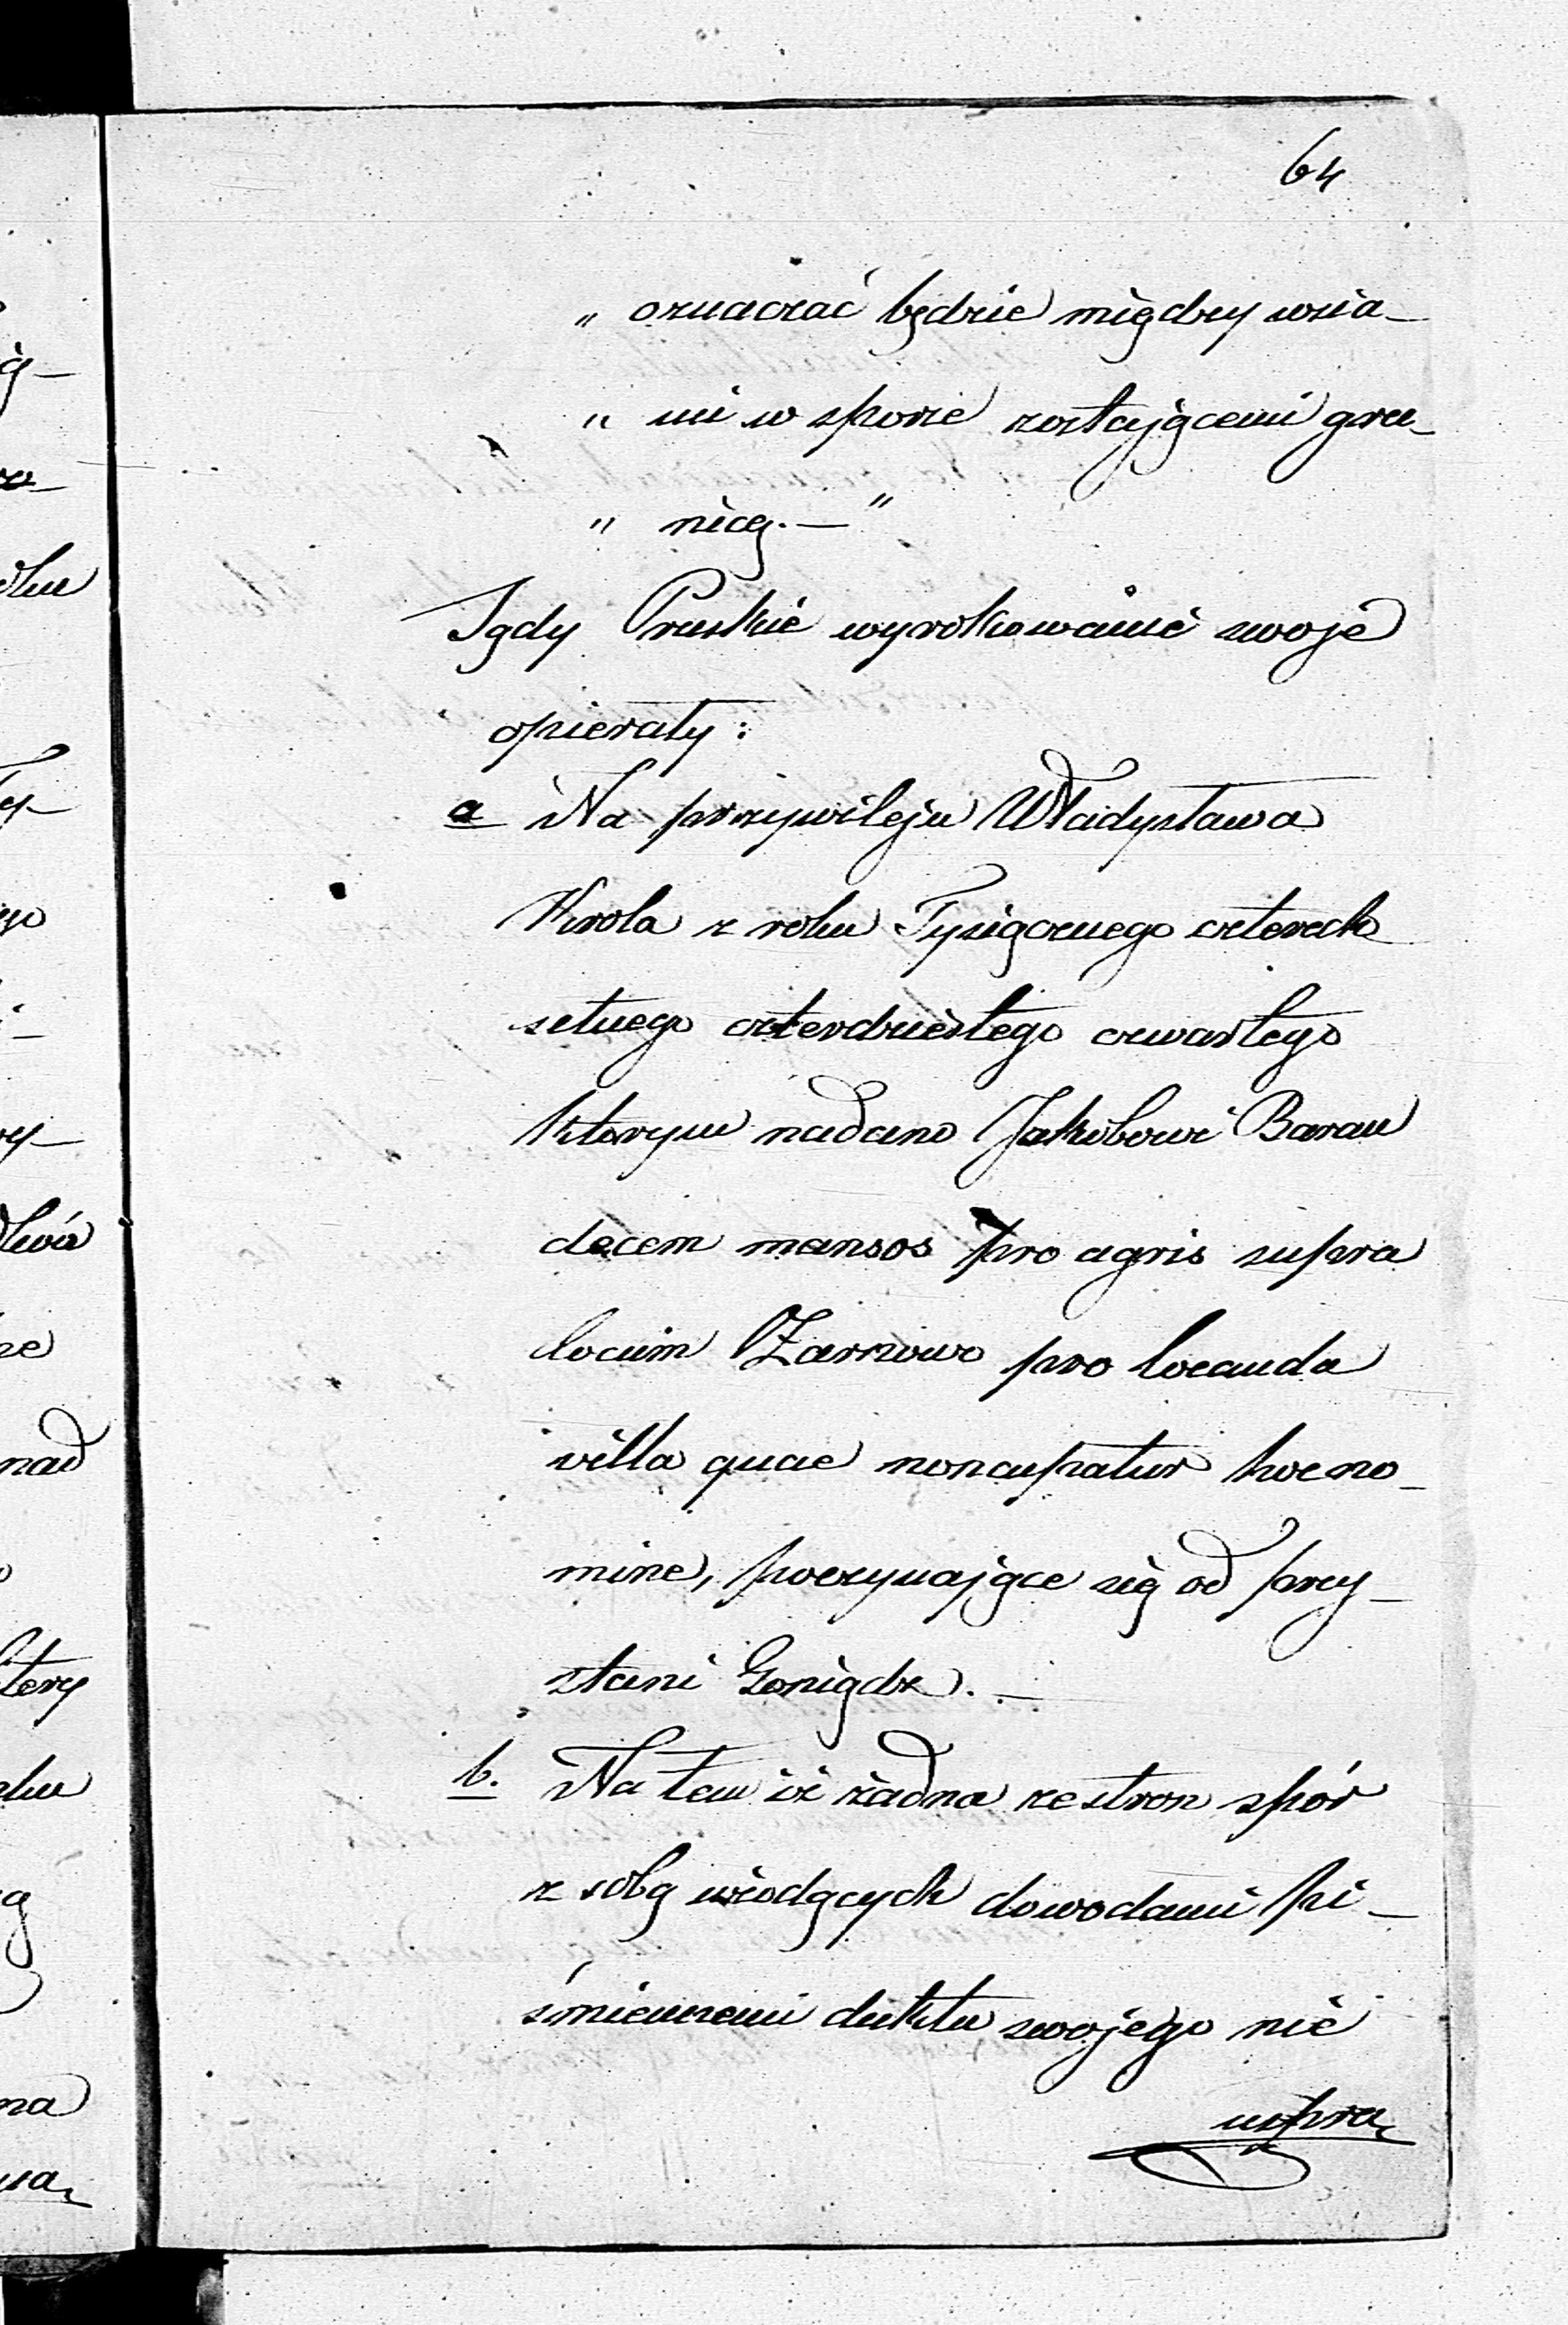 64
„ oznaczać będzie między wsia-
„ mi w sporze zostającemi gra-
„ nicę. — "
Sądy Pruskie wyrokowanie swoje
opierały:
a Na przywileju Władysława
Krola z roku Tysiącznego czterech
setnego czterdziestego czwartego
ktorym nadano Jakubowi Baran
decem mansos pro agris supra
locum Żarnowo pro locanda
villa quae noncupatur hoc no-
mine, poczynające się od przy-
stani Goniądz. —
b. Na tem iż żadna ze stron spór
z sobą wiodących dowodami pi-
śmiennemi duktu swojego nie
uspra